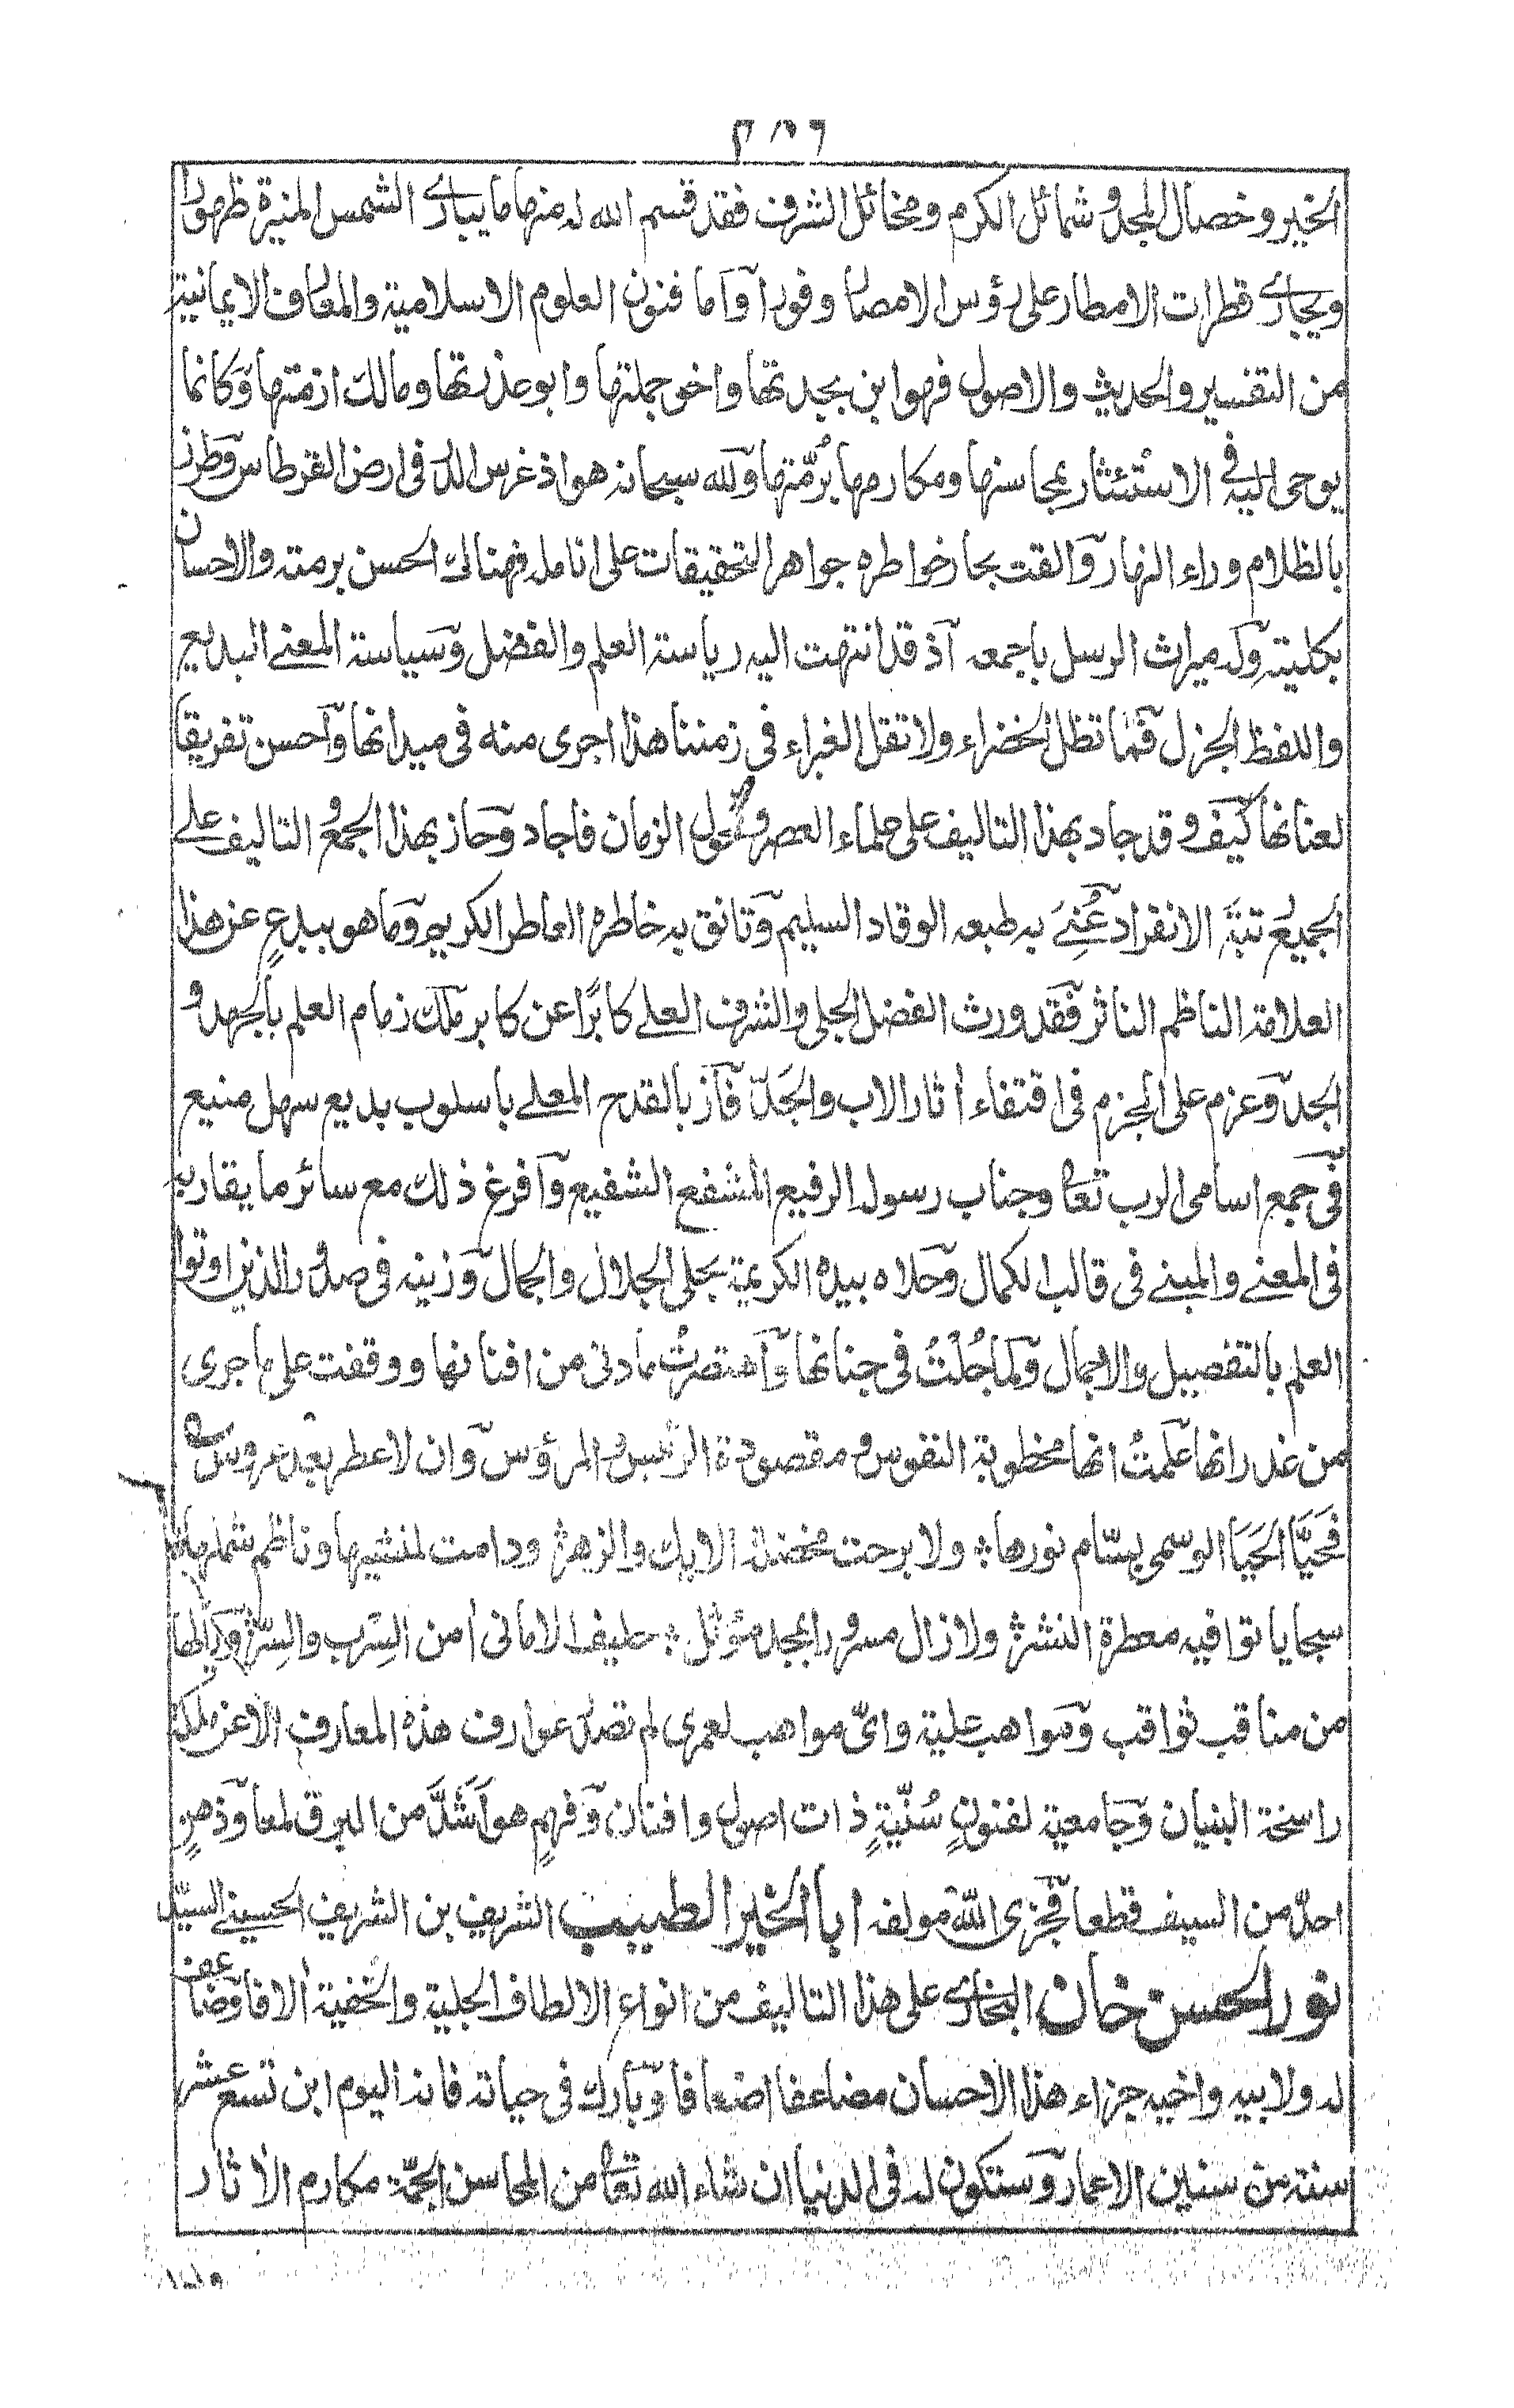 الخير وخصال المجد وشمائل الكرم ومخائل الشرف فقد قسم الله له منها ما يبارے الشمس المنيرة ظهورا
ويجارے قطرات الامطار على رؤس الامصار وفورا وآما فنون العلوم الاسلامية والمعارف الايمانية
من التفسير والحديث والاصول فهو ابن بجدتها واخو جملتها وابو عذرتها ومالك ازمتها وكانما
يوحى اليه فى الاستئثار بمحاسنها ومكارمها برُمّتها ولله سبحانه هو اذ غرس الدر فى ارض القرطاس وطرز
بالظلام رداء النهار والقت بحار خواطره جواهر التحقيقات على انامله فهنالك الحسن برمته والاحسان
بكليته وله ميراث الرسل باجمعه آذ قد انتهت اليه رياسة العلم والفضل وسياسة المعنے البديع
واللفظ الجزل فما تظل الخضراء ولا تقل الغبراء فى زمننا هذا اجرى منه فى ميدانها وآحسن تفريقا
لعنانها كيف وقد جاد بهذا التاليف على علماء العصر وفحول الزمان فاجاد وحاز بهذا الجمع و التاليف علے
الجميع رتبة الانفراد عُنِيَ به طبعه الوقاد السليم وتانق به خاطره الماطر الكريم وما هو ببدعٍ عن هذا
العلامة الناظم الناثر فقد ورث الفضل الجلى والشرف العلے كابرًا عن كابر ملك زمام العلم بالجهد و
الجد وعزم على الجزم فى اقتفاء أثار الاب والجَدّ فآز بالقدح المعلے باسلوب بديع سهل منيع
فى جمع اسامى الرب تعالى وجناب رسوله الرفيع المشفع الشفيع وآفرغ ذلك مع سائر ما يقاربه
فى المعنے والمبنے فى قالب الكمال وحلاه بيده الكريمة بحلى الجلال والجمال وزينه فى صدور الذين اوتوا
العلم بالتفصيل والاجمال ولما جُلْتُ فى جنانها وآهتصرتُ ما دنى من افنانها ووقفت على ما جرى
من غدرانها علمتُ انها مخطوبة النفوس و مقصودة الرئيس و المرؤس وان لا عطر بعد عروس ؎
فَحَيَّا الحَيَا الوسمى بسّام نورها ؞ ولا برحت مخضلة الايك والزهر ؞ ودامت لمنشيها وناظم شملها
سجايا توافيه معطرة النشر ؞ ولا زال مسرورا بمجد مؤثل ؞ حليف الامانى أمن السِرب والسِرّ ؞
من مناقب ثواقب ومواهب علية واىّ مواهب لعمرى لم تصدر عوارف هذه المعارف الا عن ملكة
راسخة البنيان وجامعية لفنونٍ سُنّيةٍ ذات اصول وافنان وفهمٍ هو آشَدّ من البرق لمعا وذهنٍ
احدّ من السيف قطعا فجزى الله مولفه ابا الخير الطيب الشريف بن الشريف الحسينے السيد
نور الحسن خان البخارے على هذا التاليف من انواع الالطاف الجلية والخفية ألافا وضاعف
له ولابيه واخيه جزاء هذا الاحسان مضاعفا اضعافا وبآرك فى حياته فانه اليوم ابن تسع عشر
سنة من سنين الاعمار وستكون له فى الدنيا ان شاء الله تعالى من المحاسن الجمّة مكارم الأثار